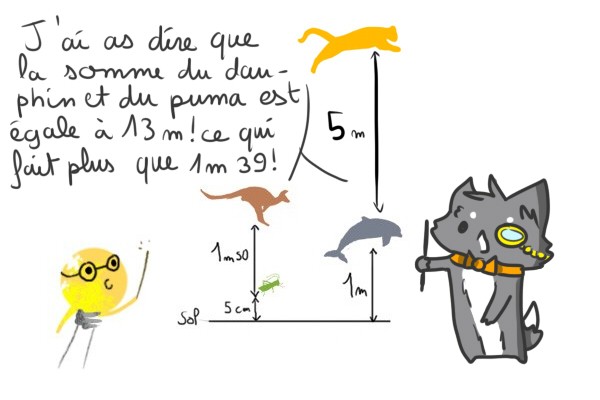 J'ai as dire que
la somme du dau-
phin et du puma est
égale à 13 m! ce qui
fait plus que 1m 39!
5 m
1m50
1m
5 cm
Sol